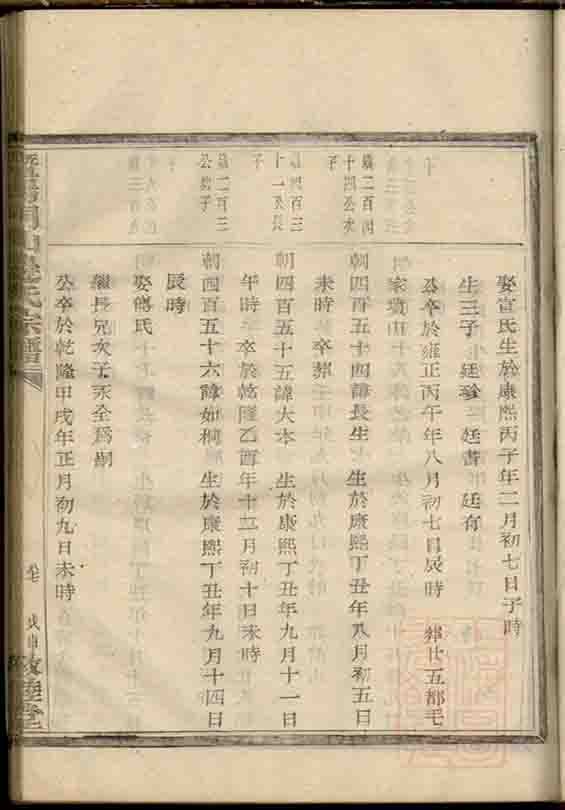 娶宣氏生於康熙丙子年二月初七日子時
生三子 廷珍 廷書 廷有
公卒於雍正丙午年八月初七日辰時 葬廿五都毛
家
歲二百四
十四公次
子
朝四百五十四諱長生 生於康熙丁丑年八月初五日
未時 卒葬
歲四百三
十一公長
子
朝四百五十五諱大本 生於康熙丁丑年九月十一日
午時 卒於乾隆乙酉年十二月初十日未時
歲二百三
公幼子
朝四百五十六諱如桐 生於康熙丁丑年九月十四日
辰時
娶傅氏
繼長兄次子永全爲嗣
公卒於乾隆甲戌年正月初九日未時
氏宗譜
戊申